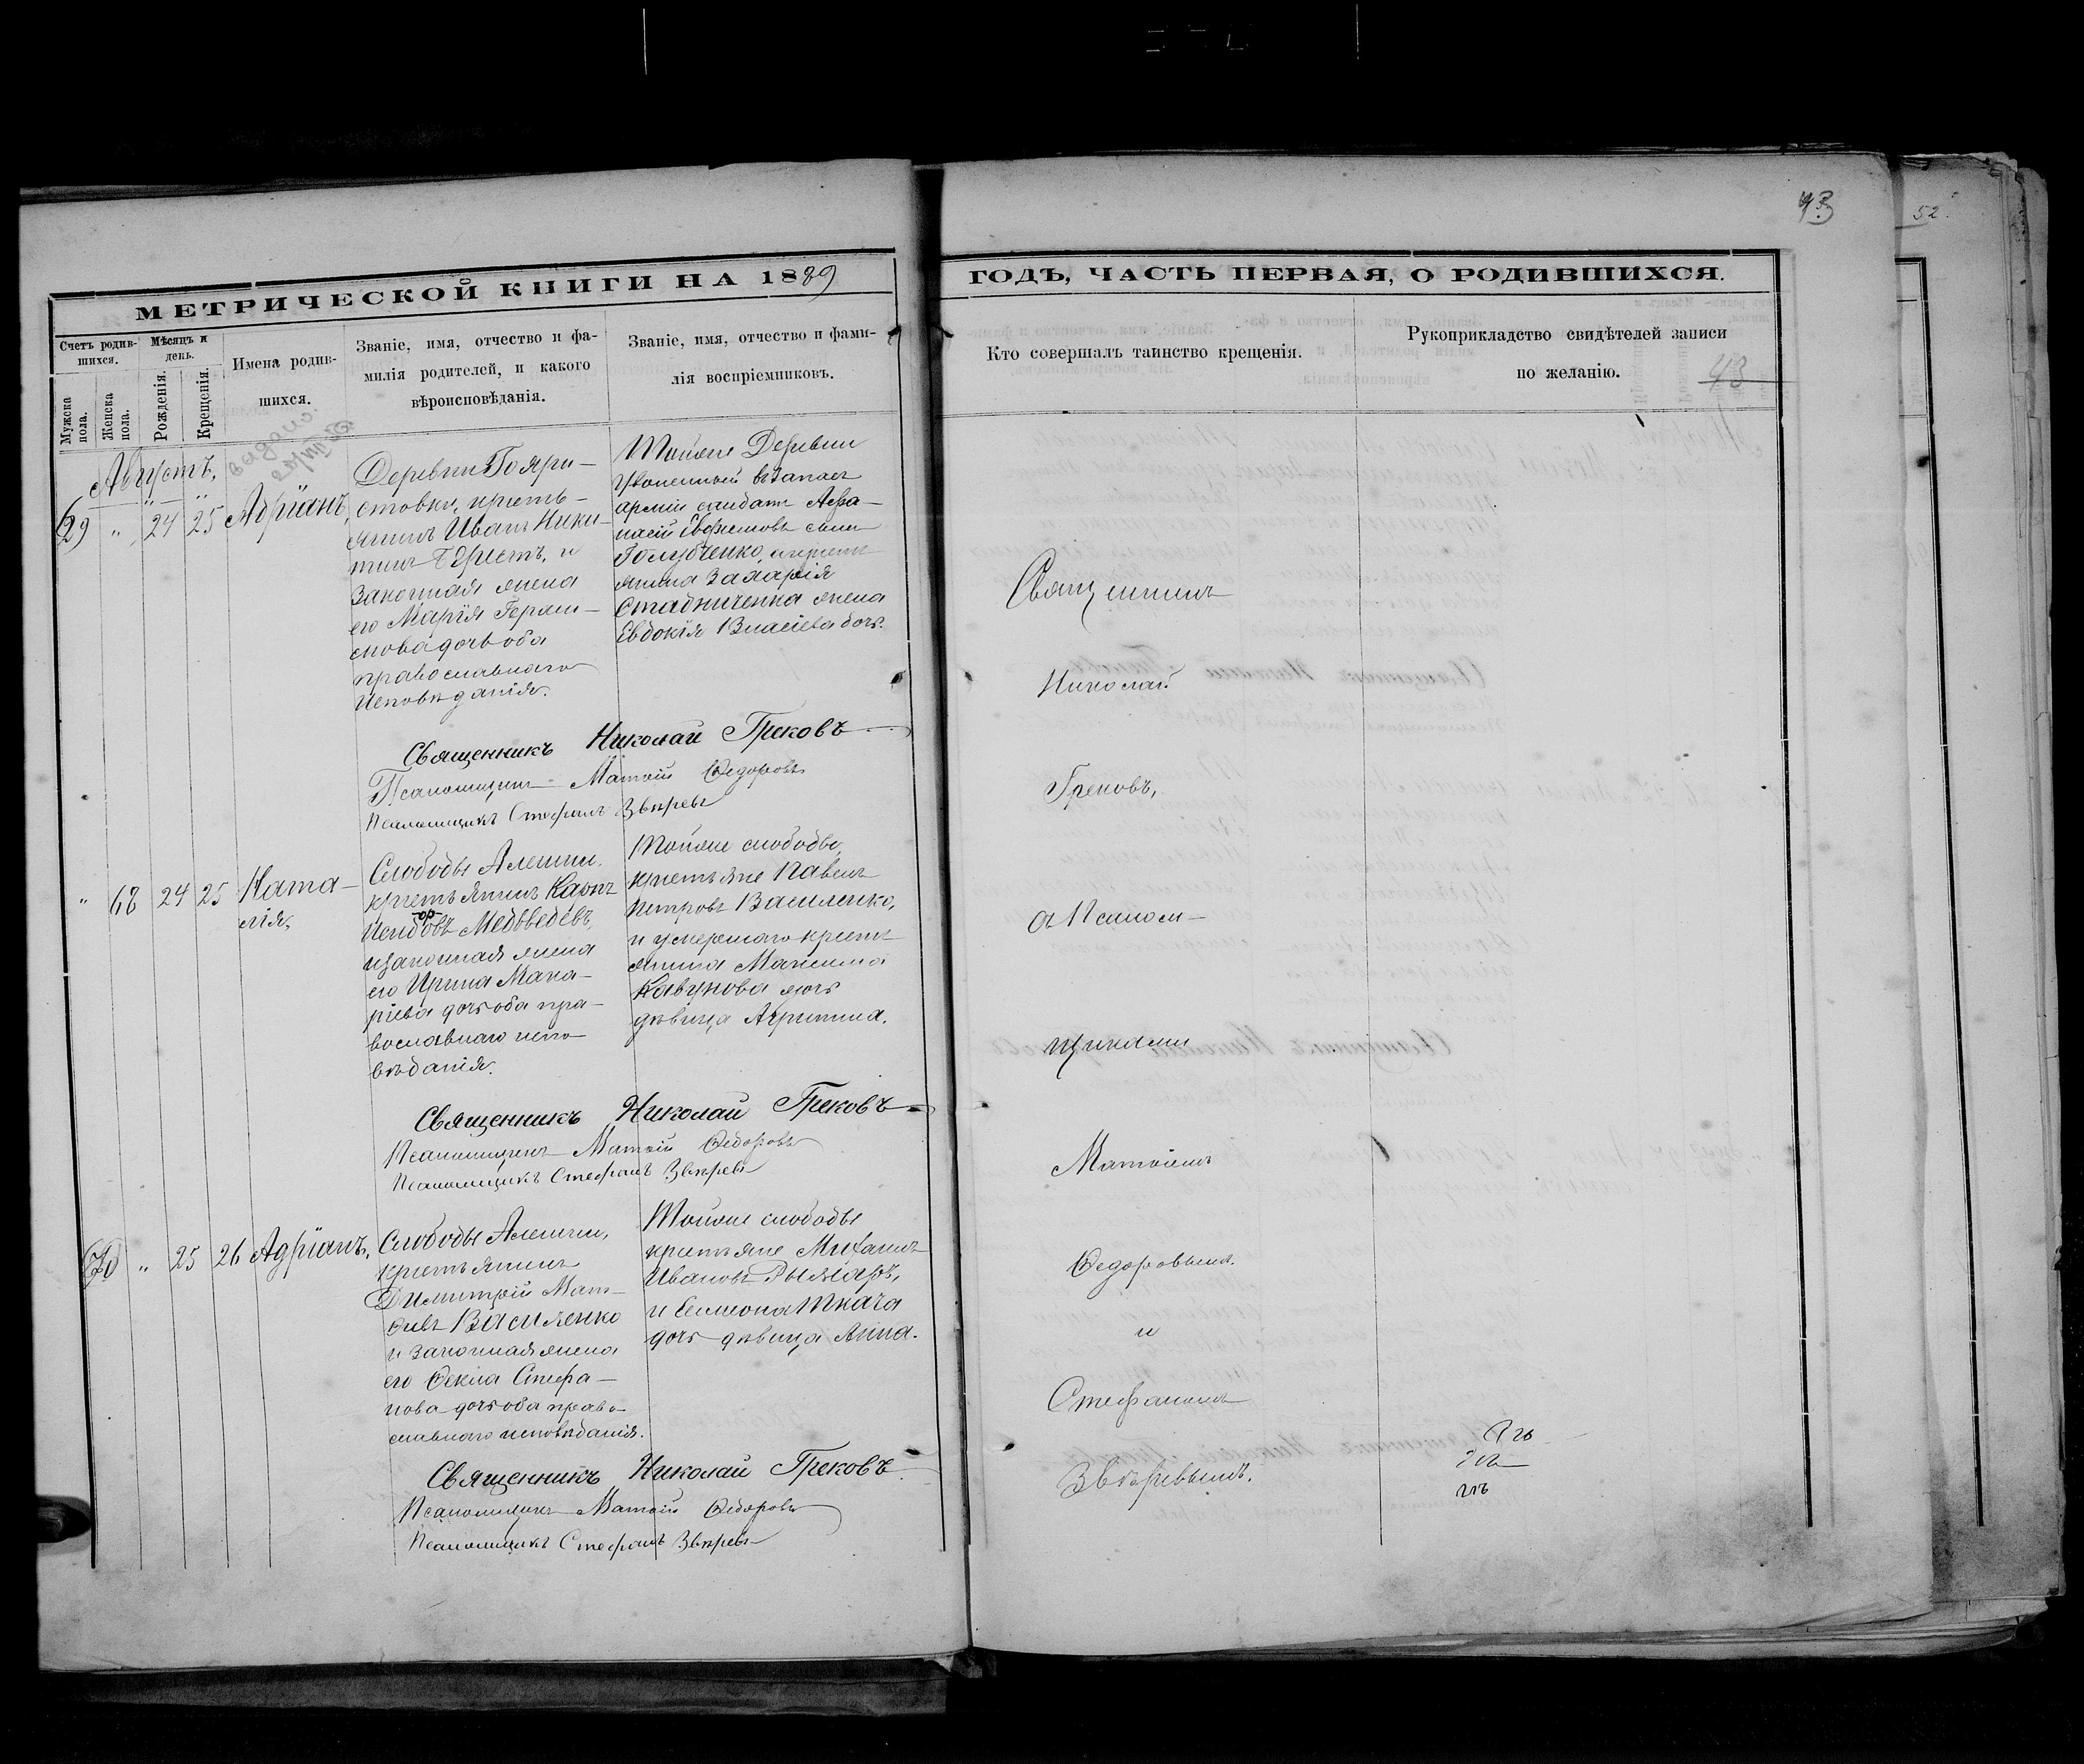 43
52
МЕТРИЧЕСКОЙ КНИГИ НА 1889
ГОДЪ, ЧАСТЬ ПЕРВАЯ, О РОДИВШИХСЯ.
Счетъ родив-
шихся.
Мужска
пола.
Женска
пола.
Мѣсяцъ и
день.
Рожденія.
Крещенія.
Имена родив-
шихся.
Званіе, имя, отчество и фа-
милія родителей, и какого
вѣроисповѣданія.
Званіе, имя, отчество и фами-
лія воспріемниковъ.
Кто совершалъ таинство крещенія.
Рукоприкладство свидѣтелей записи
по желанію.
43
выдано
Августъ,
69 " 24 25 Адріанъ,
Деревни Бояри-
стовки, кресть-
янинъ Иванъ Ники-
тинъ и
законная жена
его Марія Гераси-
мова дочь оба
православнаго
исповѣданія.
Тойже Деревни
уволенный въ запасъ
арміи солдатъ Афа-
насій Евфимовъ сынъ
Голубченко, и кресть
янина Захарія
Стадниченка жена
Евдокія Власіева дочь.
Священникъ Николай Грековъ
Псаломщикъ Матѳій Ѳедоровъ
Псаломщикъ Стефанъ Звѣревъ
" 68 24 25 Ната-
лія,
Слободы Алешни,
крестьянинъ Карпъ
Медвѣдевъ,
и законная жена
его Ирина Мака-
ріева дочь оба пра-
вославнаго испо-
вѣданія.
Тойже слободы,
крестьяне Павелъ
Петровъ Василенко,
и умершаго кресть
янина Максима
Кавунова дочь
дѣвица Агрипина.
Священникъ Николай Грековъ
Псаломщикъ Матѳій Ѳедоровъ
Псаломщикъ Стефанъ Звѣревъ
70 " 25 26 Адріанъ,
Слободы Алешни,
крестьянинъ
Димитрій Мат-
ѳіевъ Василенко
и законная жена
его Ѳекла Стефа-
нова дочь оба право-
славнаго исповѣданія.
Тойже слободы
крестьяне Михаилъ
Ивановъ Рымарь,
и Симеона Ткача
дочь дѣвица Анна.
Священникъ Николай Грековъ
Псаломщикъ Матѳій Ѳедоровъ
Псаломщикъ Стефанъ Звѣревъ
Священникъ
Николай
Грековъ,
съ Псалом-
щиками
Матѳіемъ
Ѳедоровымъ
и
Стефаномъ
Звѣревымъ.